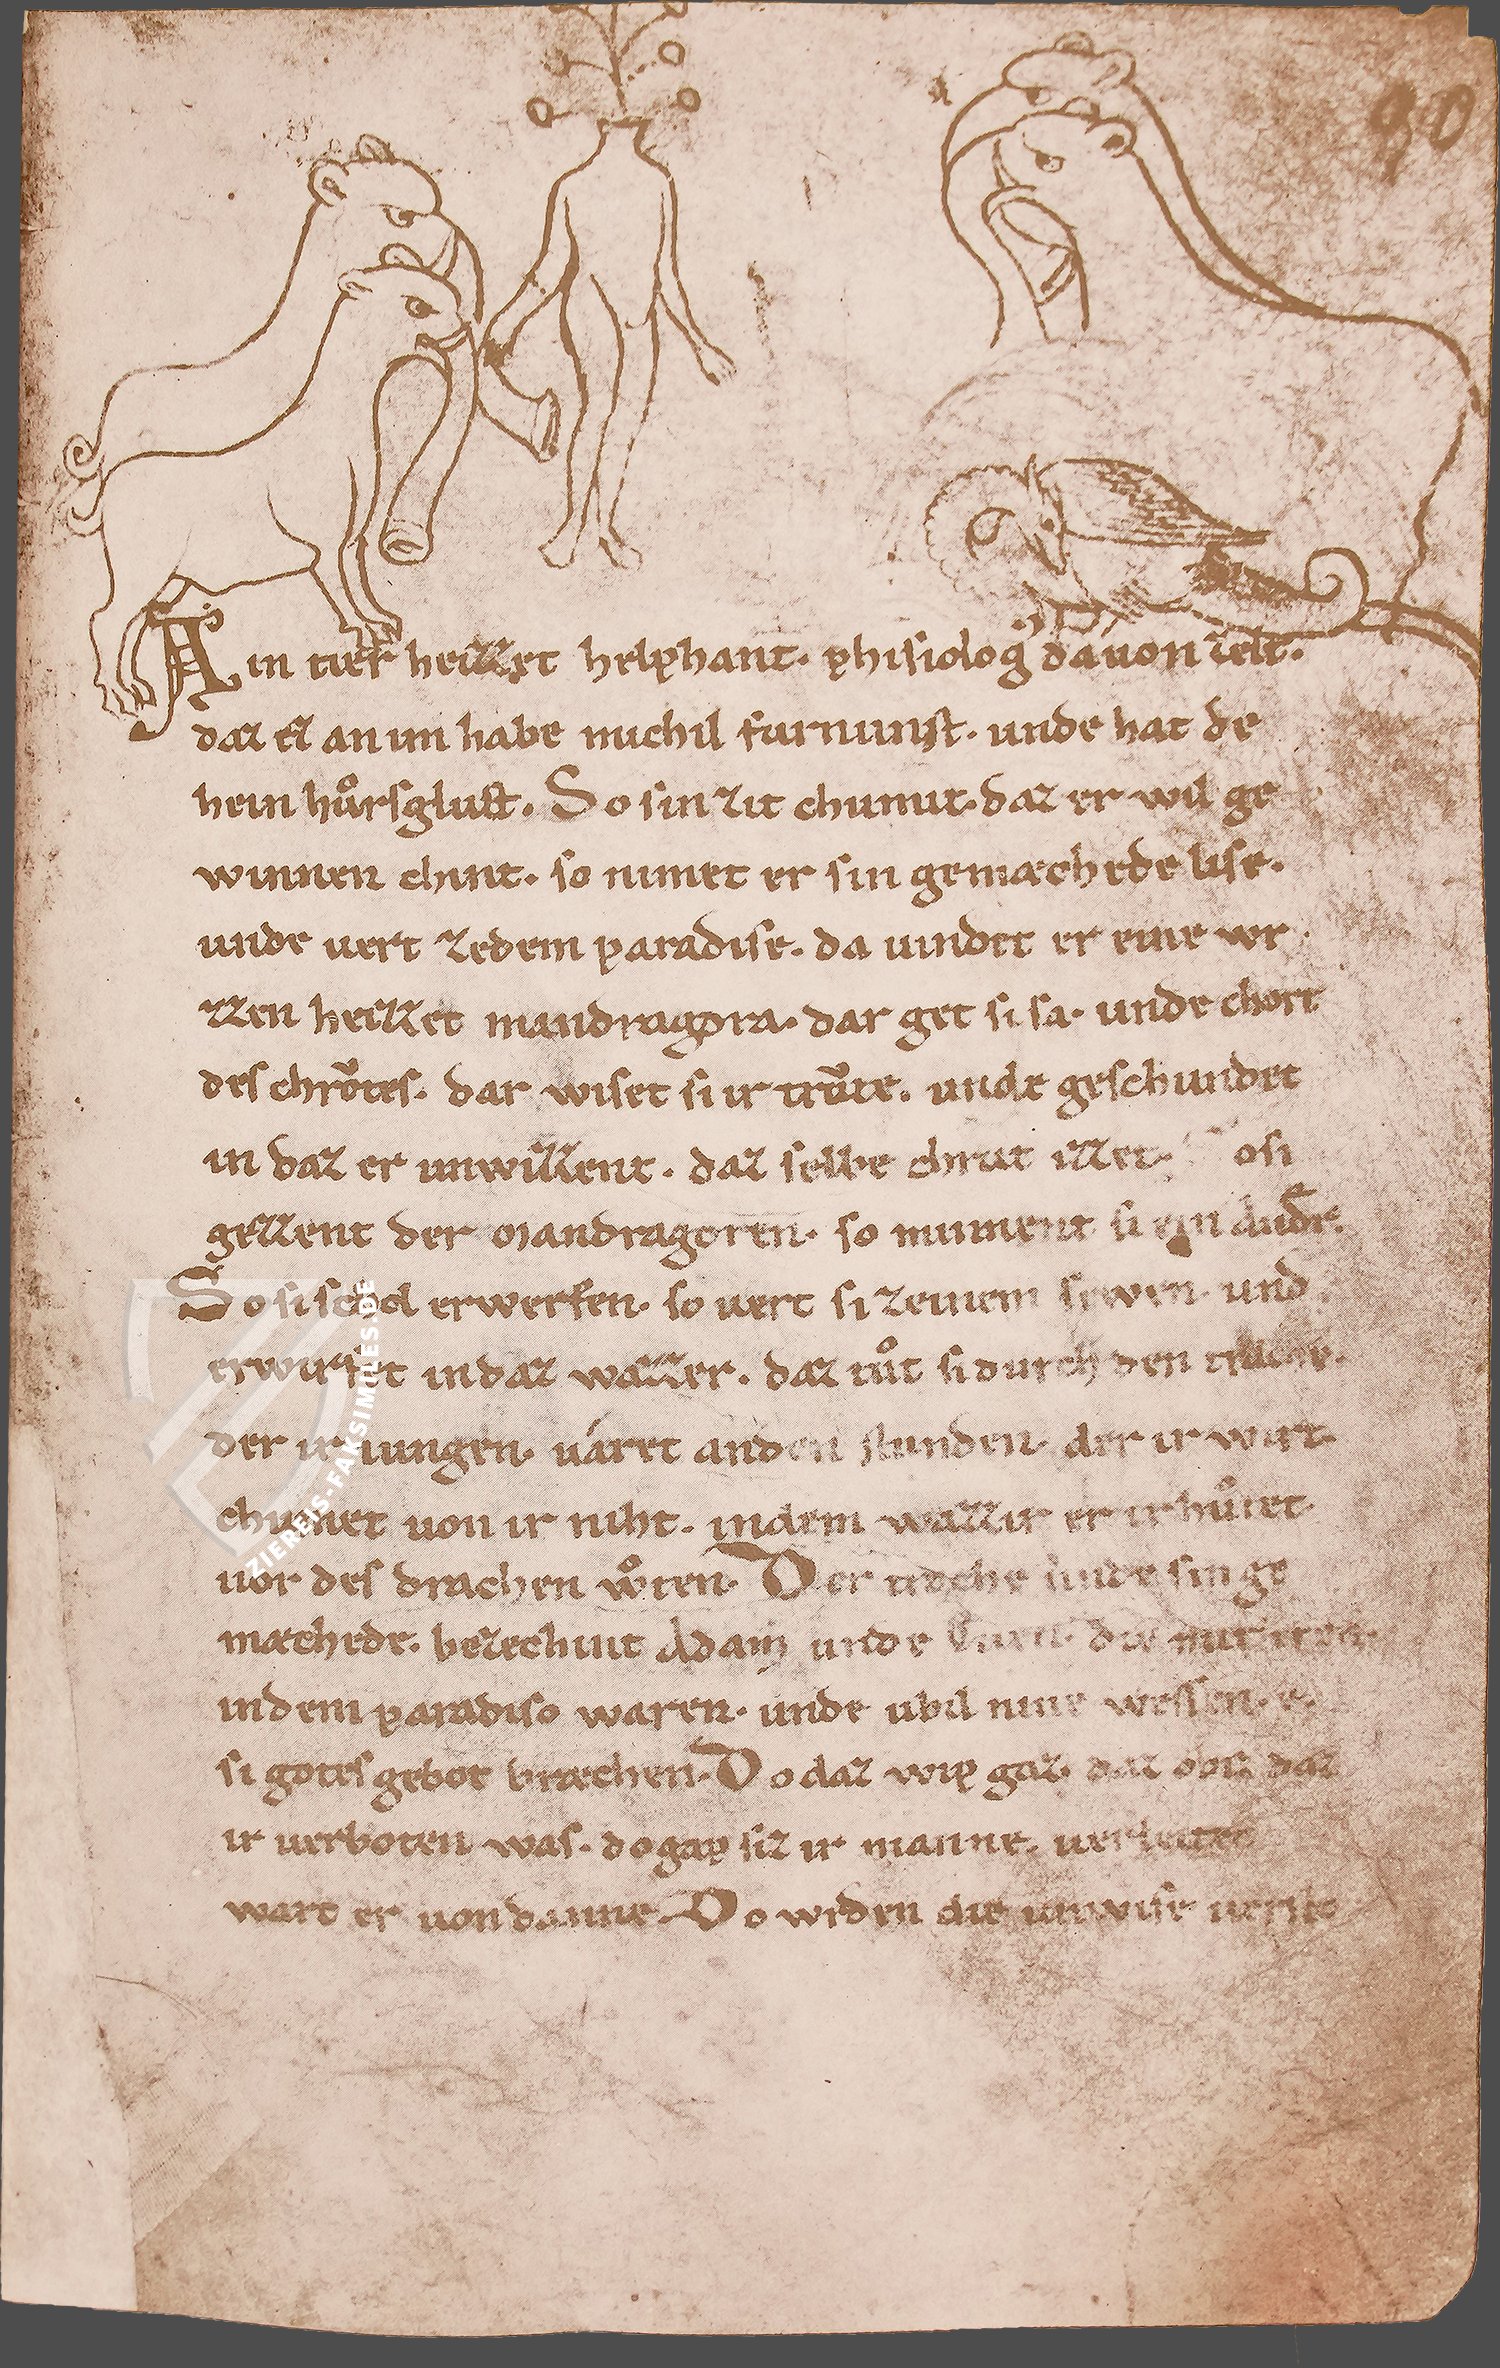 90
Ain tier heizzet helphant· phisiolog⁹ dauon zelt·
daz er an im habe michil furnunst· unde hat de
hein hůrsglust. So sin zit chumit· daz er wil ge
winnen chint· so nimet er sin gemæchede lise·
unde uert zedem paradise· da uindet er eine wr
zzen heizzet mandragora· dar get si sa· unde chort
des chrǒtes· dar wiset si ir trǒte. unde geschundet
in daz er unwizzent· daz selbe chrut izzet· osi
gezzent der mandragoren· so minnent si ein andr̄·
So si scol erwerfen· so uert si zeinem sewen· und
erwirfet indaz wazzer· daz tůt si durch den
der ir iungen· uáret anden stunden· der ir wirt·
chumet uon ir niht· indem wazzir er ir hůtet·
uor des drachen wůten· Der unde sin ge
mæchede· bezechint Adam unde
indem paradiso waren· unde ubil niwe wessen· e·
si gotes gebot bræchen· Do daz wip gaz· daz obiz daz
ir uerboten was· do gap siz ir manne·
wart er uon danne· Do wrden die unwise
ZIEREIS-FAKSIMILES.DE